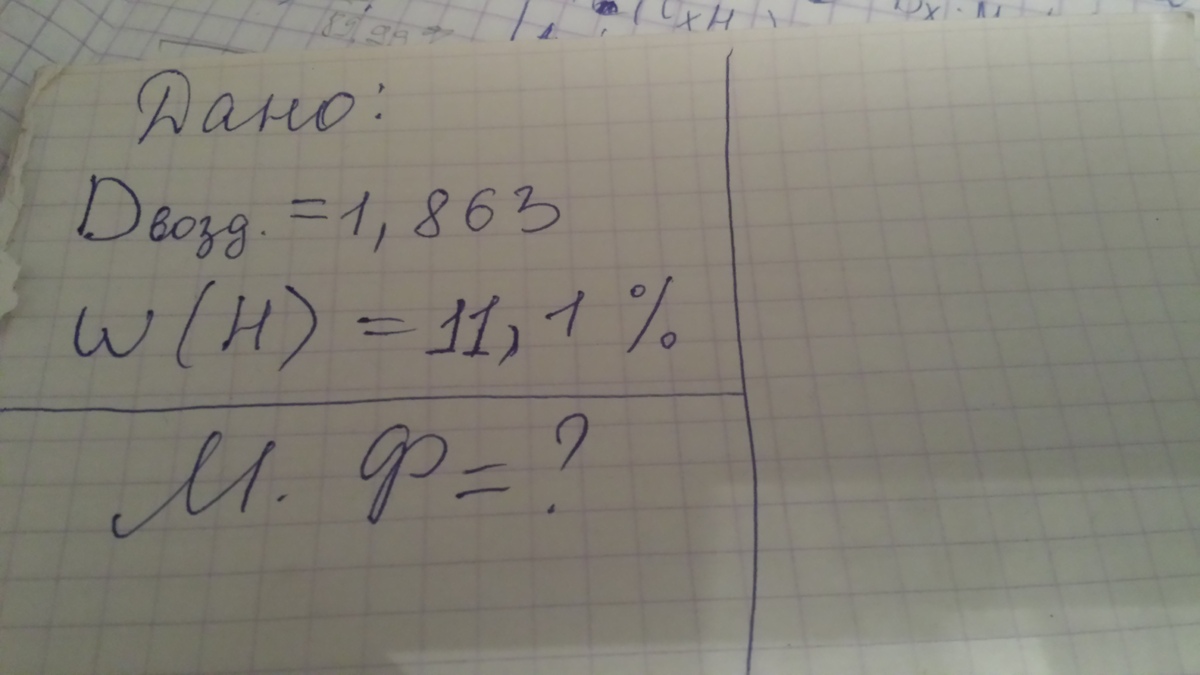 Дано:
Dвозд. = 1,863
W (H) = 11,1 %
М. Ф = ?